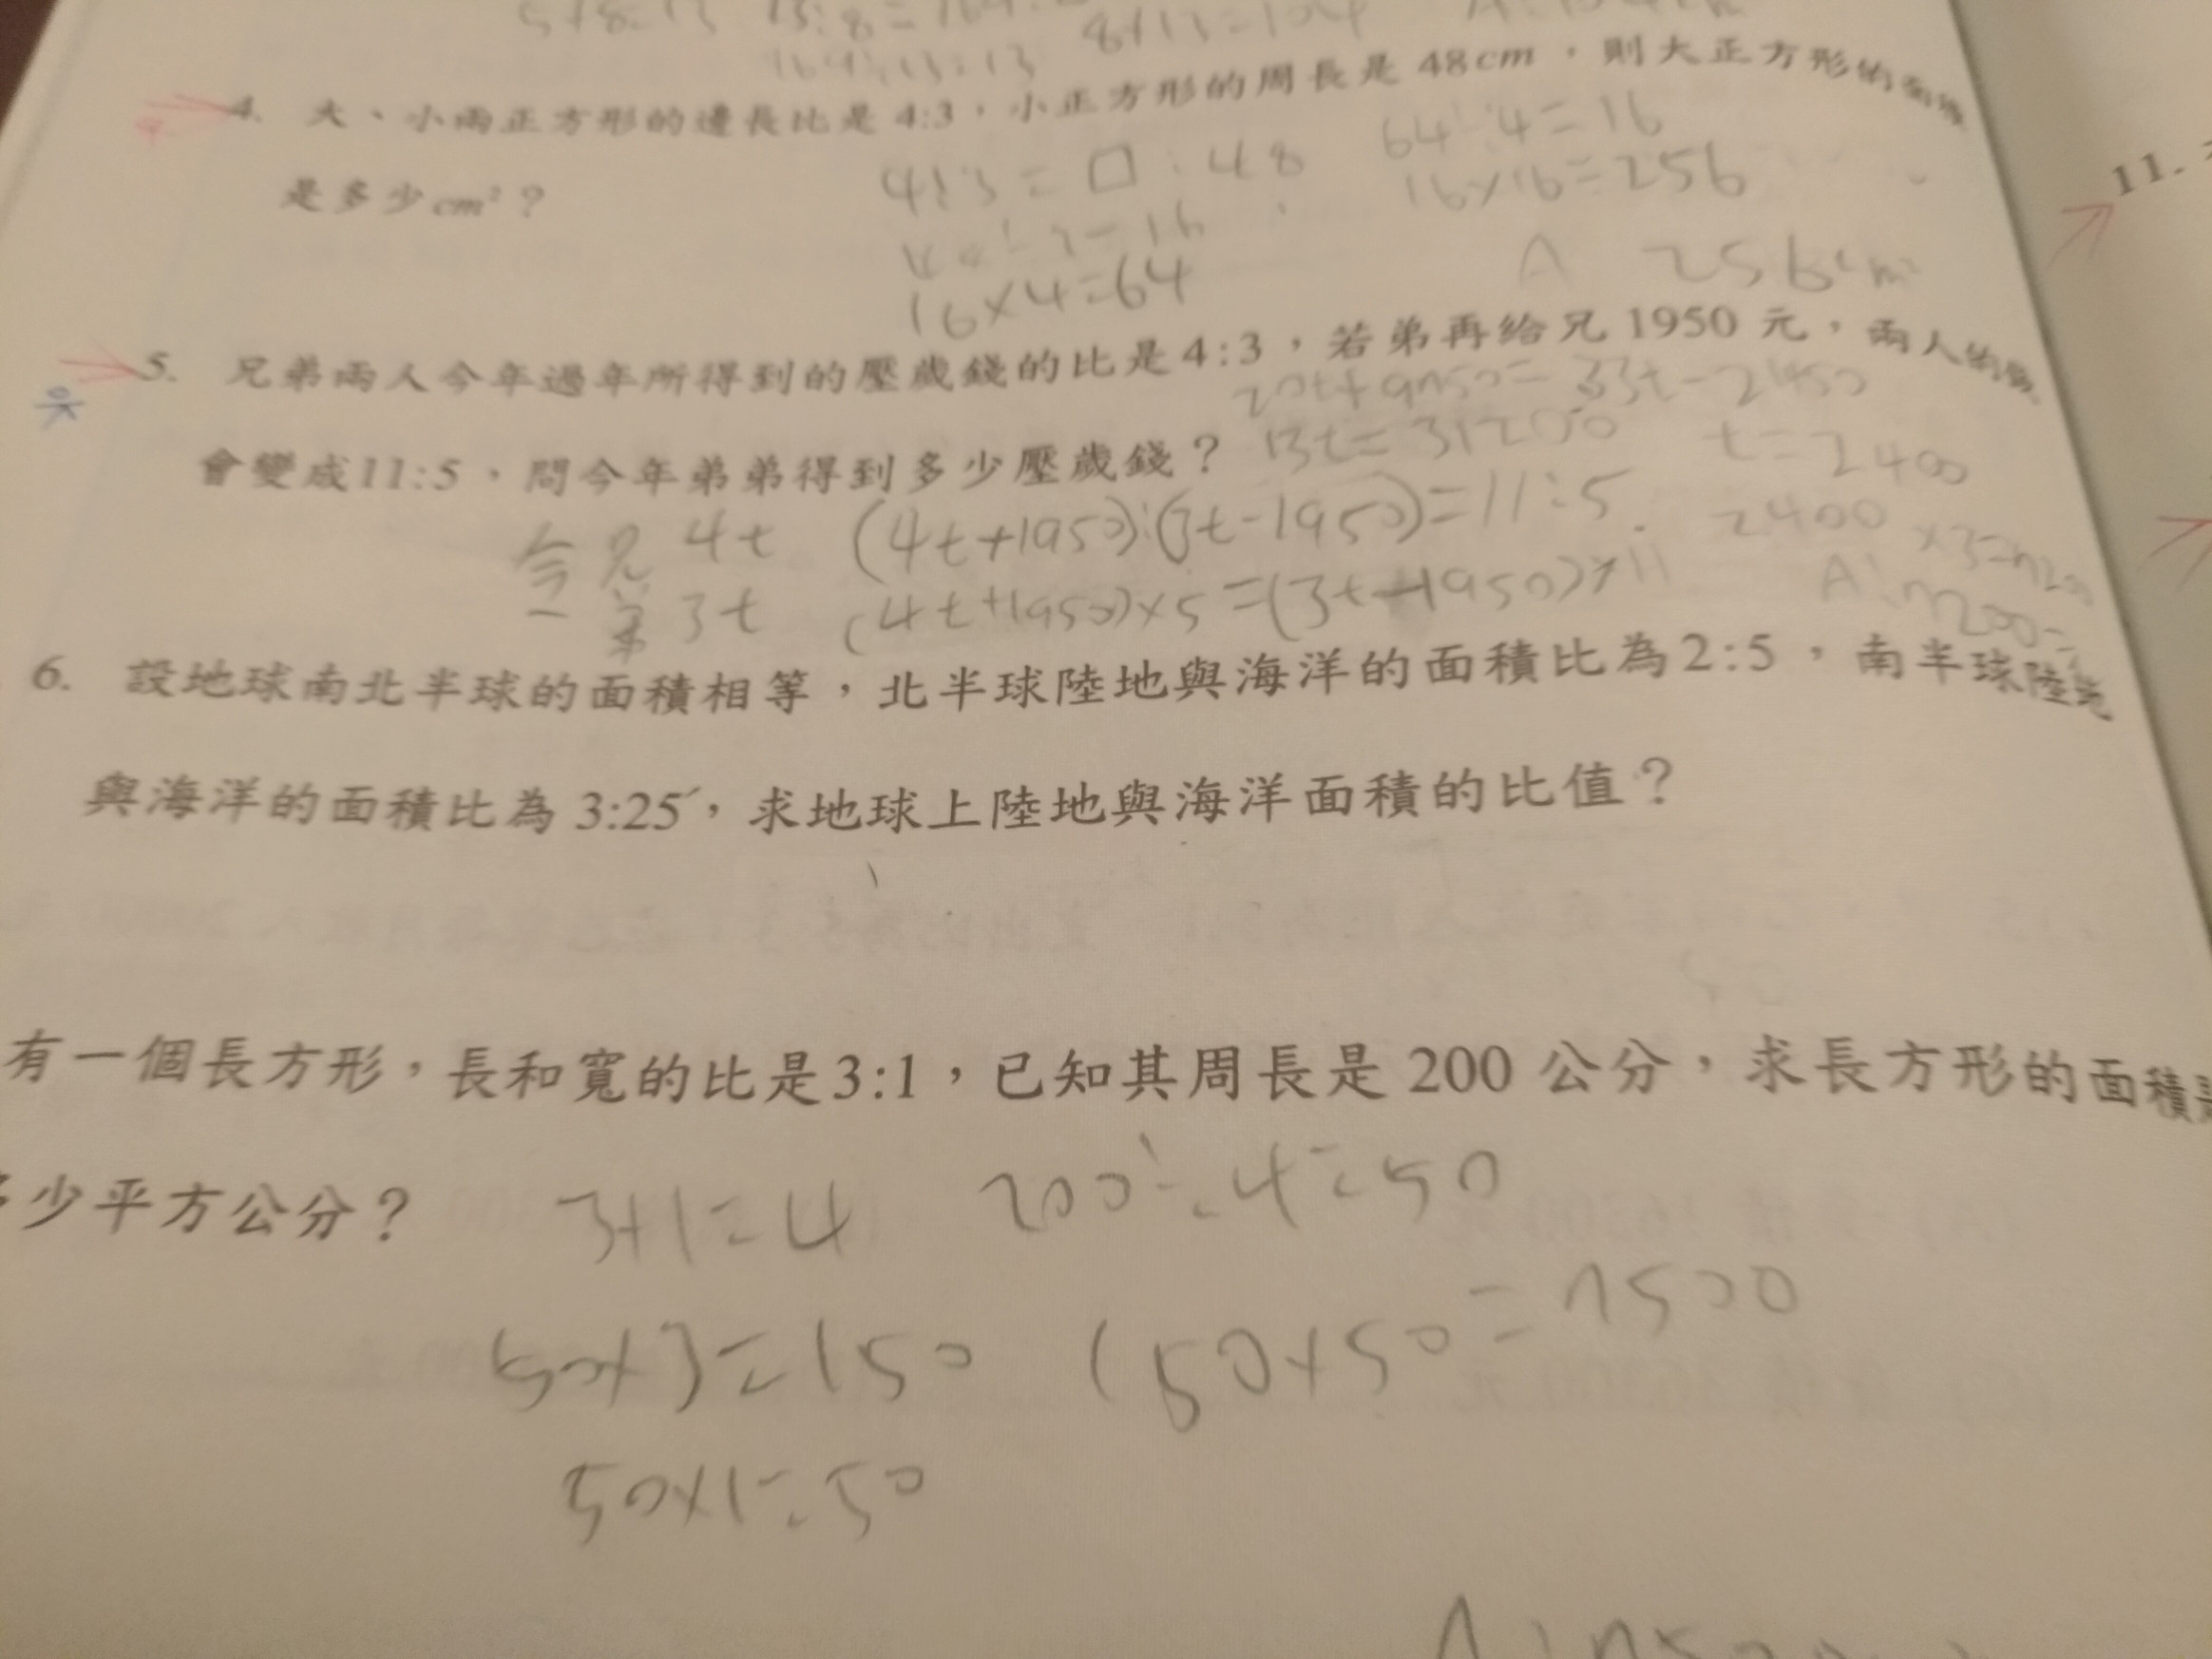 5+8=13 13:8=169:
169÷13=13 8×13=104
4. 大、小兩正方形的邊長比是 4:3，小正方形的周長是 48cm，則大正方形的面積
是多少cm²？
4:3=□:48
48÷3=16
16×4=64
64÷4=16
16×16=256
A 256cm²
11.
5. 兄弟兩人今年過年所得到的壓歲錢的比是4:3，若弟再給兄 1950 元，兩人的
會變成11:5，問今年弟弟得到多少壓歲錢？
20t+9750=33t-21450
13t=31200 t=2400
兄 4t (4t+1950):(3t-1950)=11:5
弟 3t (4t+1950)×5=(3t-1950)×11
2400×3=7200
A:7200元
6. 設地球南北半球的面積相等，北半球陸地與海洋的面積比為2:5，南半球陸地
與海洋的面積比為 3:25，求地球上陸地與海洋面積的比值？
有一個長方形，長和寬的比是3:1，已知其周長是 200 公分，求長方形的面積
少平方公分？
3+1=4 200÷4=50
50×3=150 150×50=7500
50×1=50
A:7500